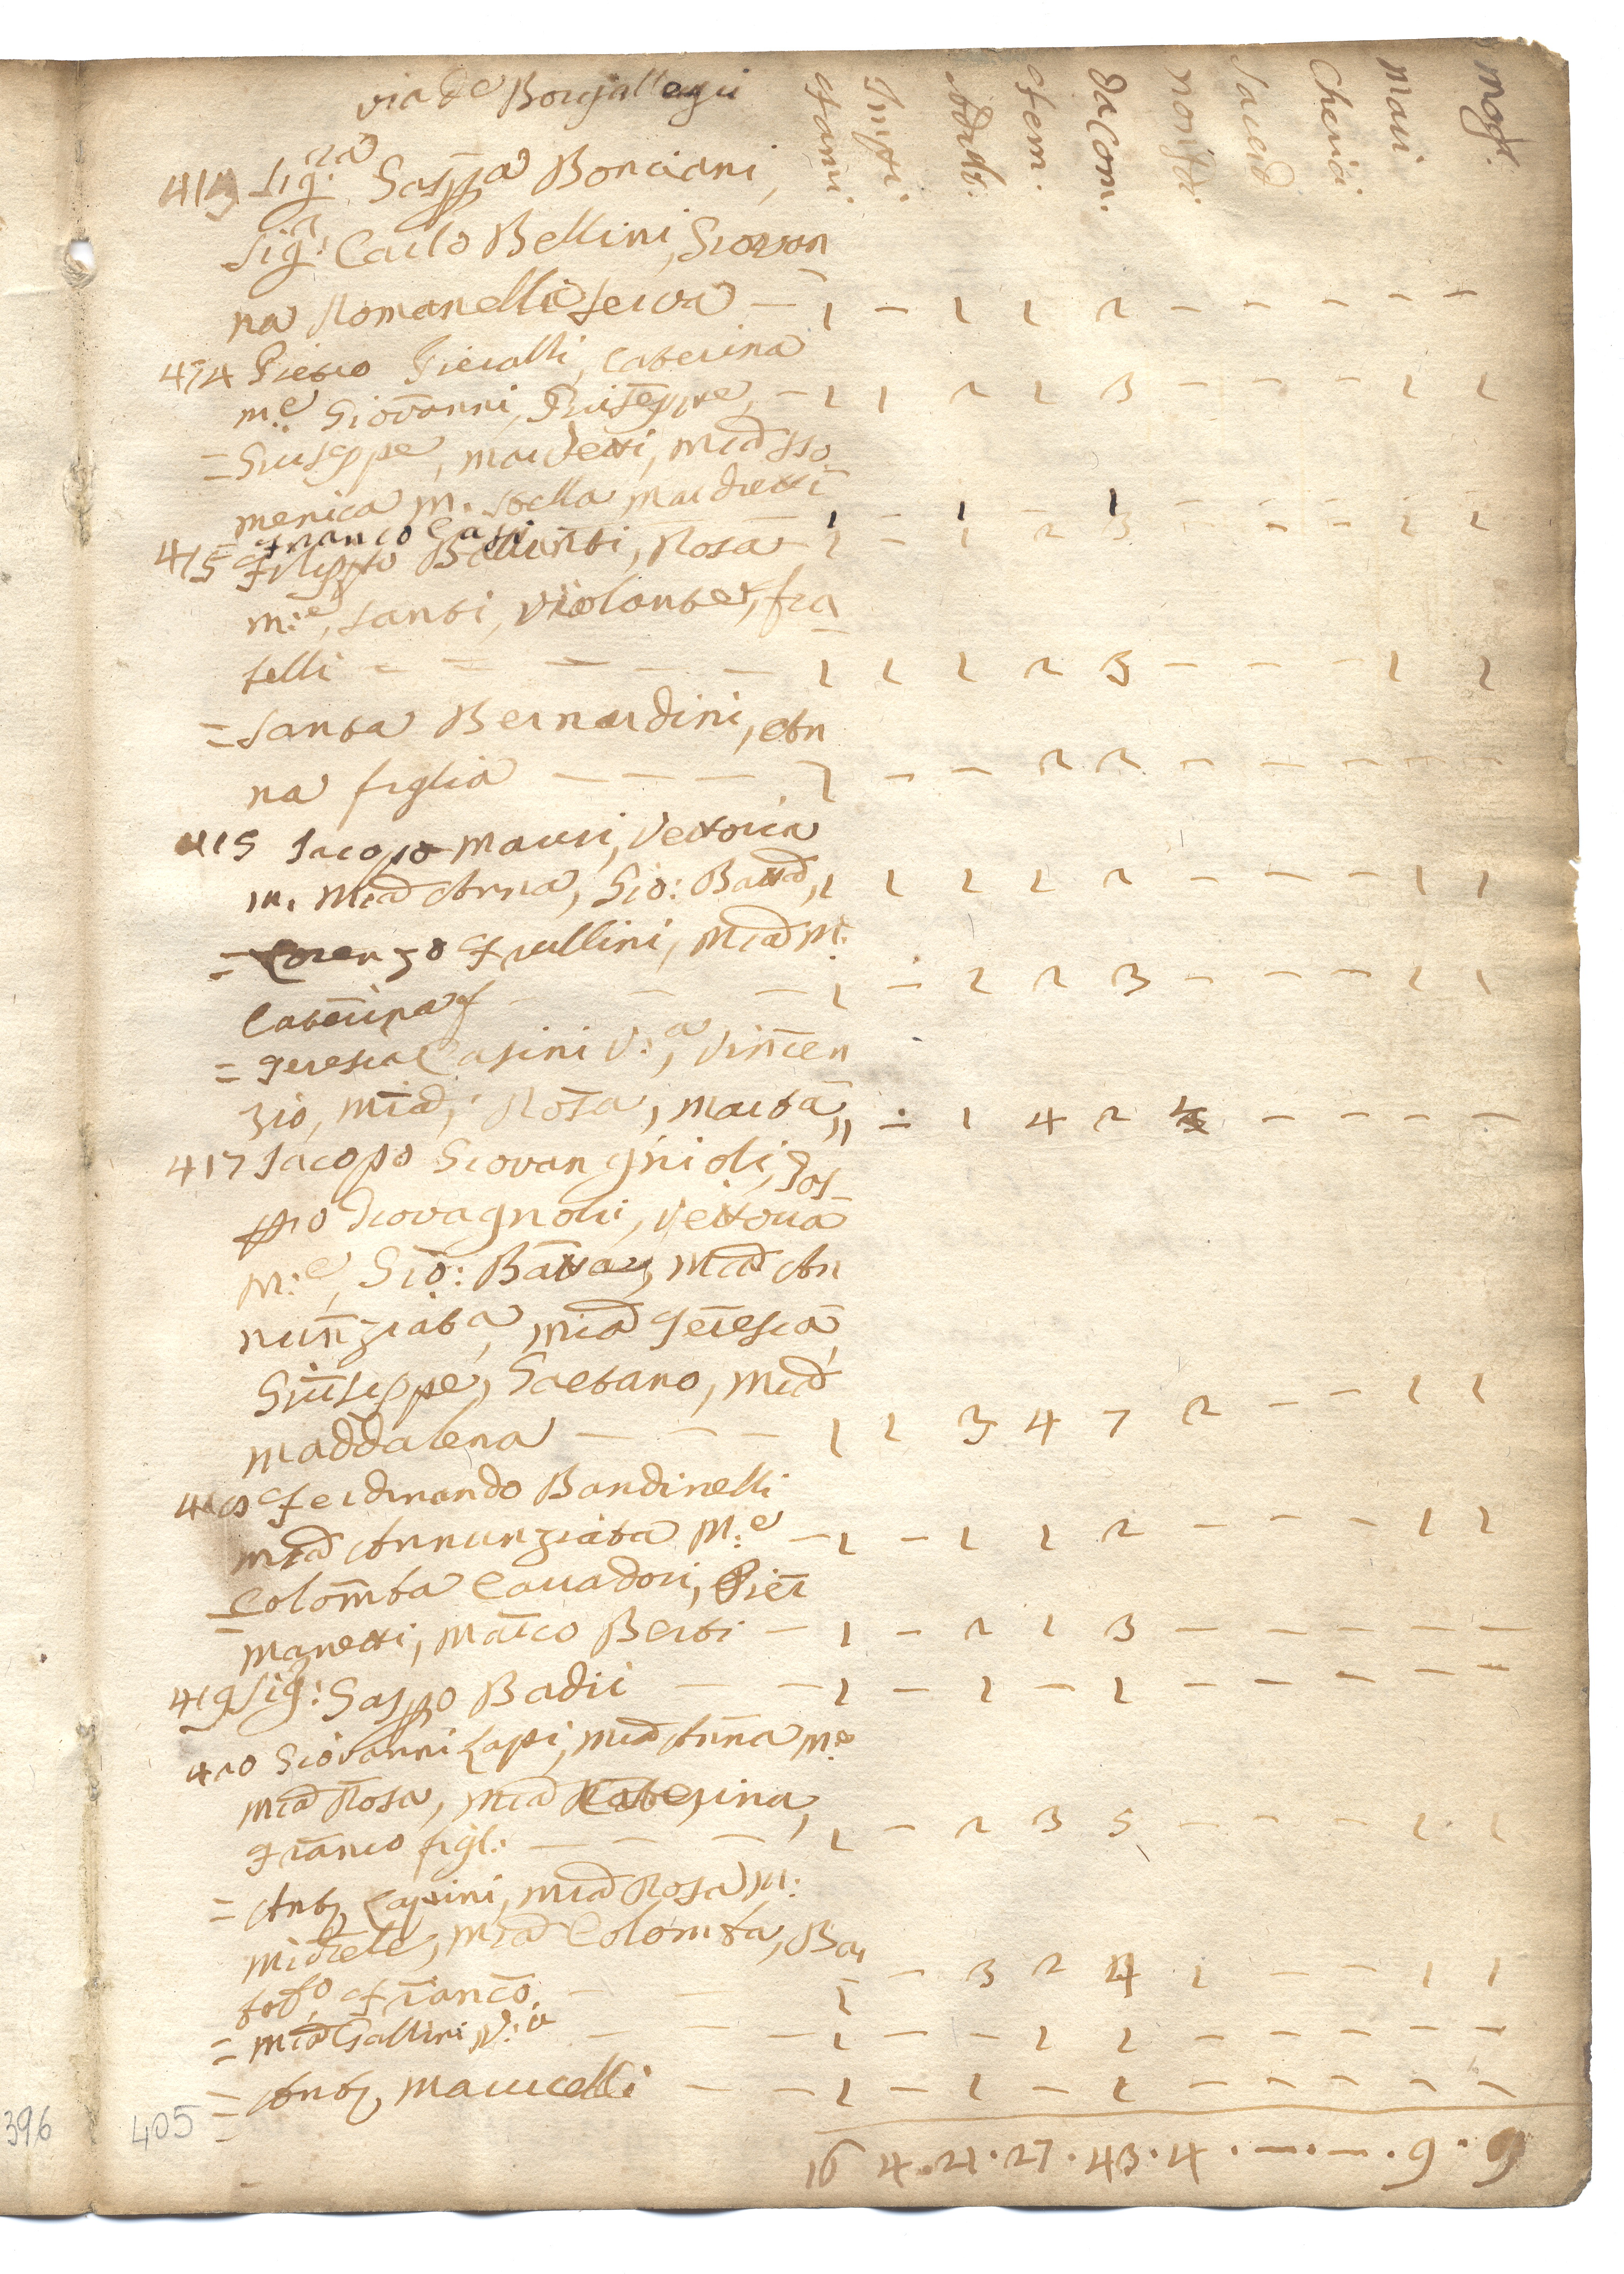 via de Borgallegri
Fami. Imfti. oddlo: Fem. da Com. non da Sacerd Cherici Mari Mogl.
413 Sig.ra Gasppa Bonciani,
Sig.r Carlo Bellini, Giovan
na Romanelli serva — 1 – 1 1 2 – – – – –
414 Pietro Pieralli, Caterina
m.e Giovanni, Giuseppe, – 1 1 2 1 3 – – – 1 1
= Giuseppe, Mardetti, Mia Do
menica m. Stella Mardretti
Franco Gasi 1 – 1 – 1
415 Filippo Balunti, Rosa – 1 – 1 2 3 – – – 1 1
m:e, Santi, Violante, fra
telli – – – – – 1 1 1 2 3 – – – 1 1
= Santa Bernardini, An
na figlia – – – 1 – – 2 2 – – – – –
415 Jacopo Mauri, Vettoria
m. Mia Anna, Gio: Batta, 1 1 2 2 2 – – – 1 1
= Lorenzo Frullini, Mia m.
Caterina f – – – 1 – 1 2 3 – – – 1 1
= Teresia Casini V:a, Vincen
zio, Mia, Rosa, Marta, 1 – 1 4 2 4 – – – –
417 Jacopo Giovangnioli, Gas
ppo Giovagnoli, Vettoria
M:e, Gio: Batta, Mia An
nunziata, Mia Teresia
Giuseppe, Gaetano, Mia
Maddalena – – – 1 1 3 4 7 2 – – 1 1
418 Ferdinando Bandinelli
Mia Annunziata M:e – 1 – 1 1 2 – – – 1 1
= Colomba Cavadori, Pier
Manetti, Marco Berti – 1 – 2 1 3 – – – – –
419 Sig: Gasppo Badii – – 1 – 1 – 1 – – – – –
420 Giovanni Lapi, Mia Anna m.e
Mia Rosa, Mia Caterina,
Franco figl: – – – 1 – 2 3 5 – – – 1 1
= Anto Lapini, Mia Rosa M:
Michele, Mia Colomba, Bar
to, Franco – – 1 – 3 2 4 1 – – 1 1
= Mia Gallini V:a – – – 1 – – 1 1 – – – – –
= Anto Marucelli – – 1 – 1 – 1 – – – – –
16 4 . 21 . 27 . 43 . 4 . – . – . 9 . 9
396 405